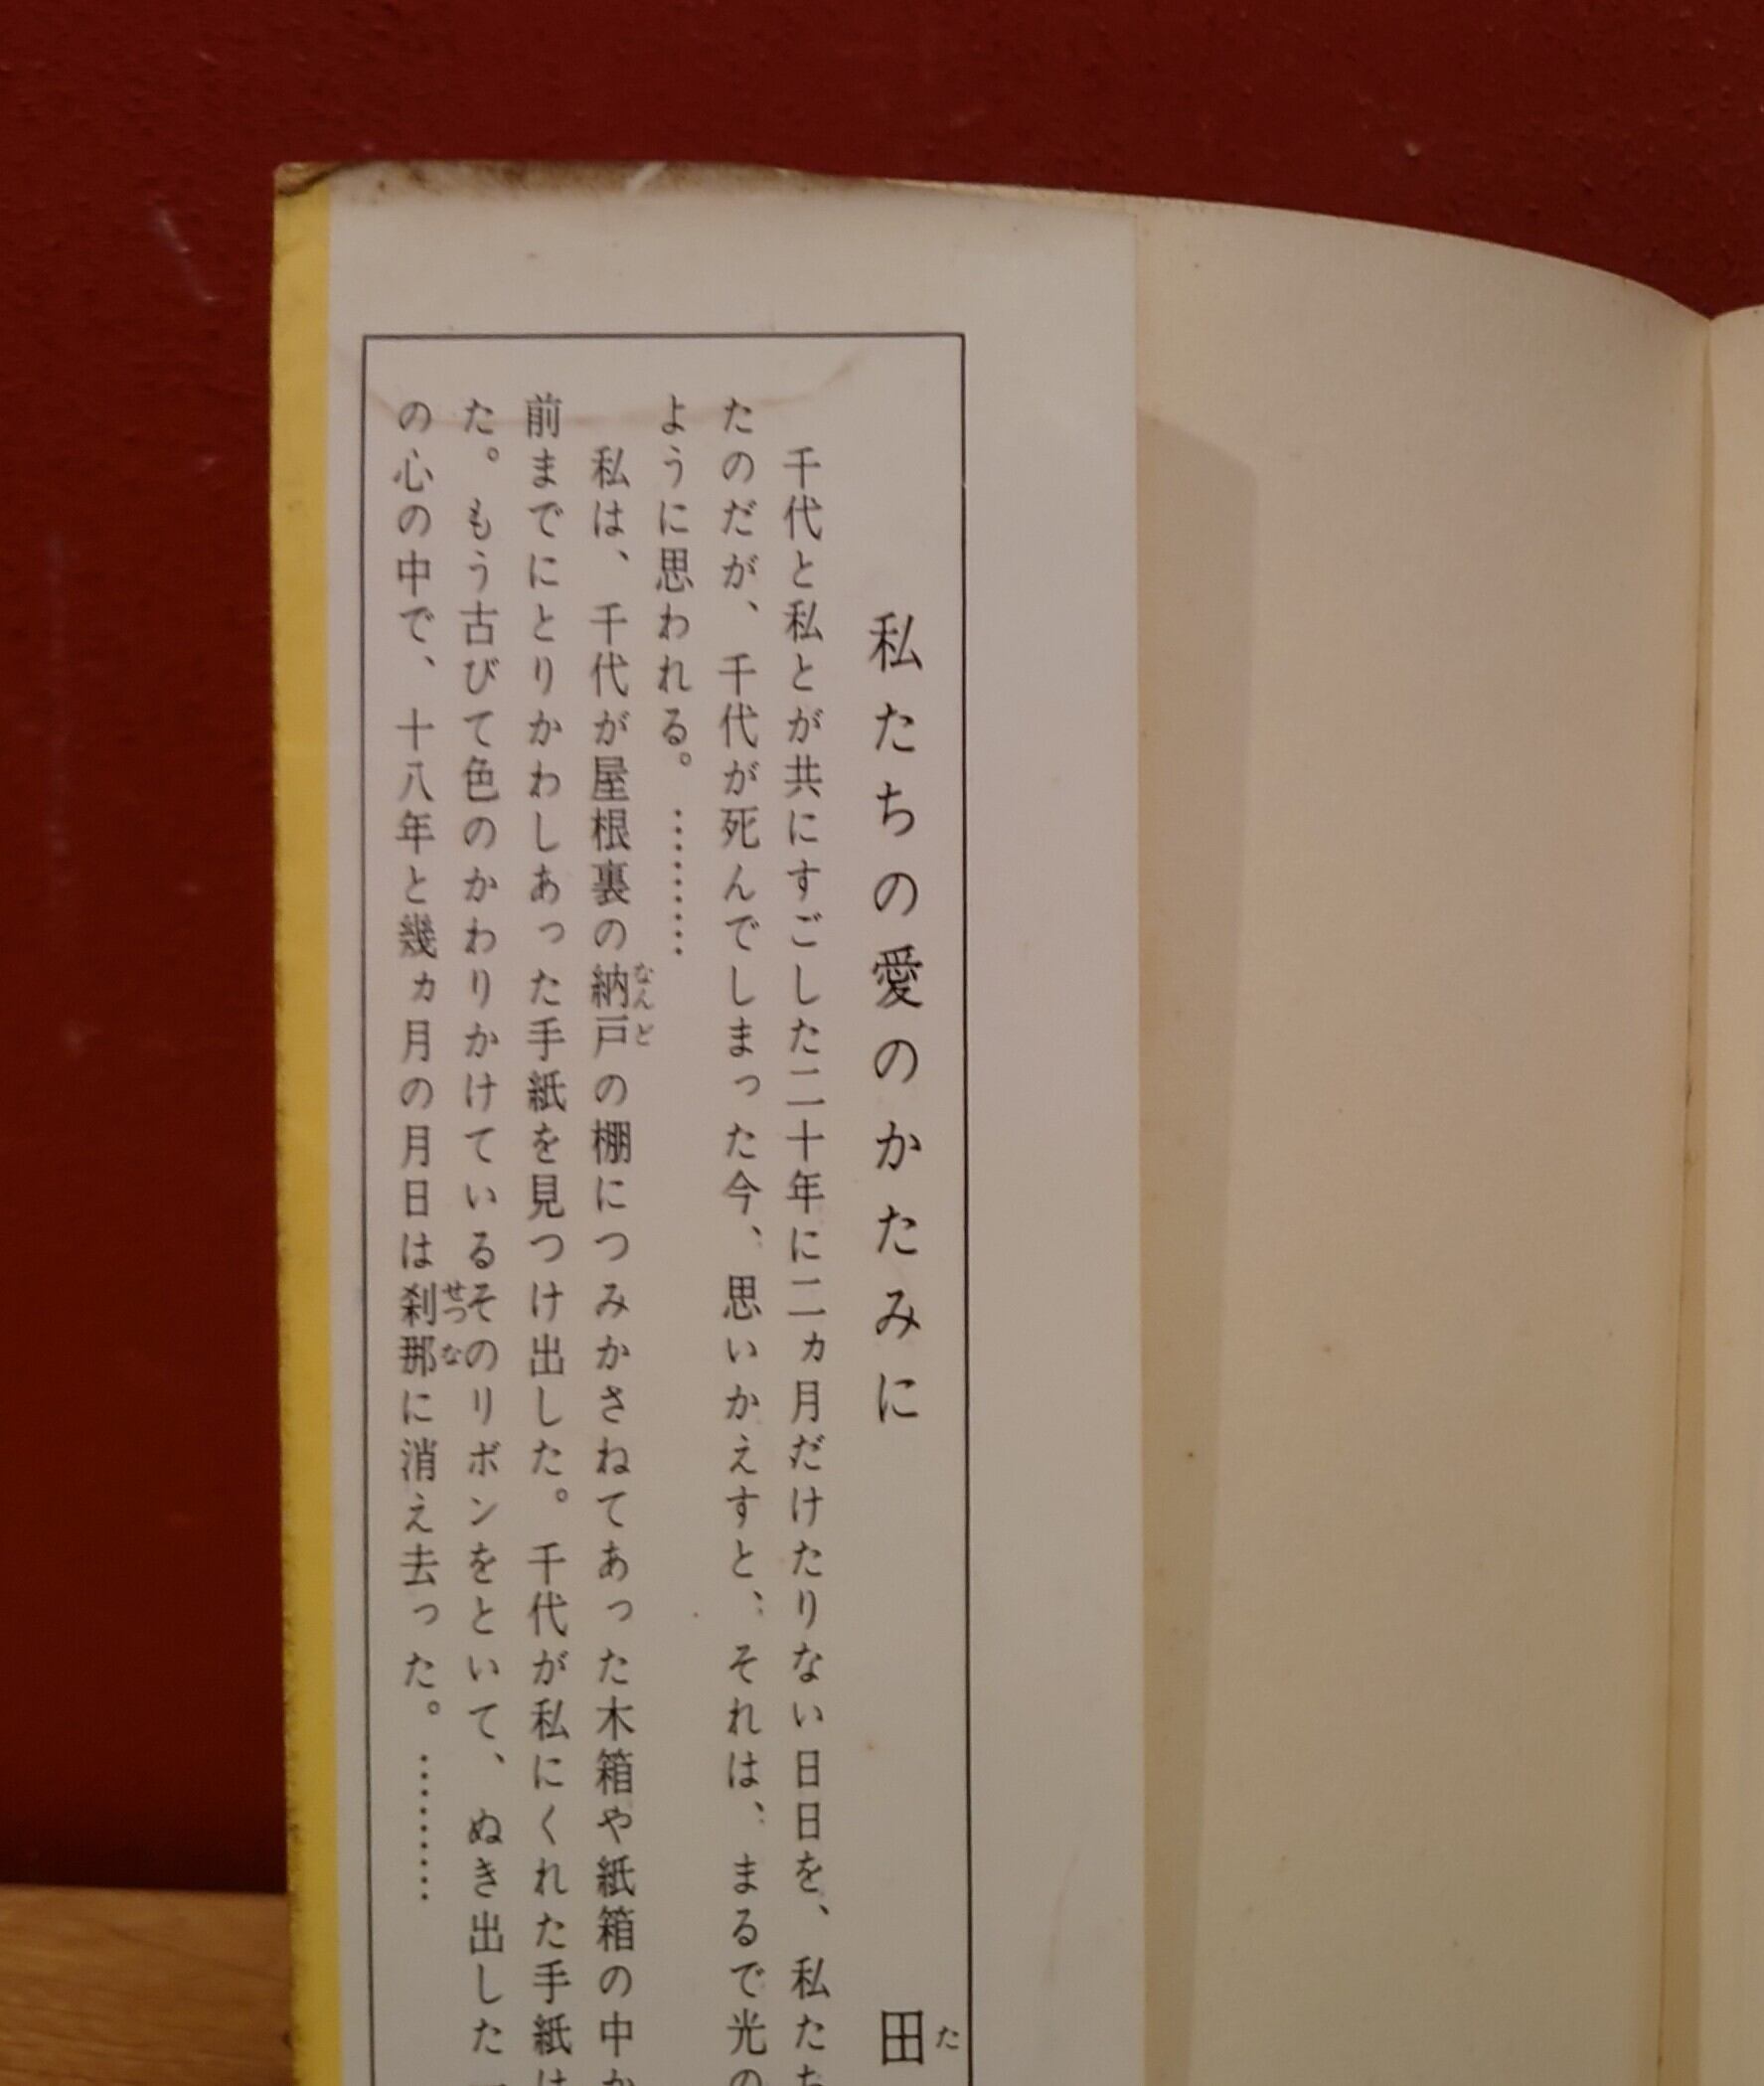 私たちの愛のかたみに 田
た
千代と私とが共にすごした二十年に二ヵ月だけたりない日日を、私たち
たのだが、千代が死んでしまった今、思いかえすと、それは、まるで光の
ように思われる。………
私は、千代が屋根裏の納戸の棚につみかさねてあった木箱や紙箱の中か
なんど
前までにとりかわしあった手紙を見つけ出した。千代が私にくれた手紙は
た。もう古びて色のかわりかけているそのリボンをといて、ぬき出した一
の心の中で、十八年と幾ヵ月の月日は刹那に消え去った。………
せつな